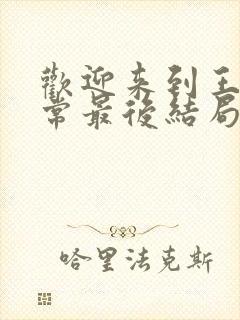 歡迎來到王
常最後結局
哈里法克斯